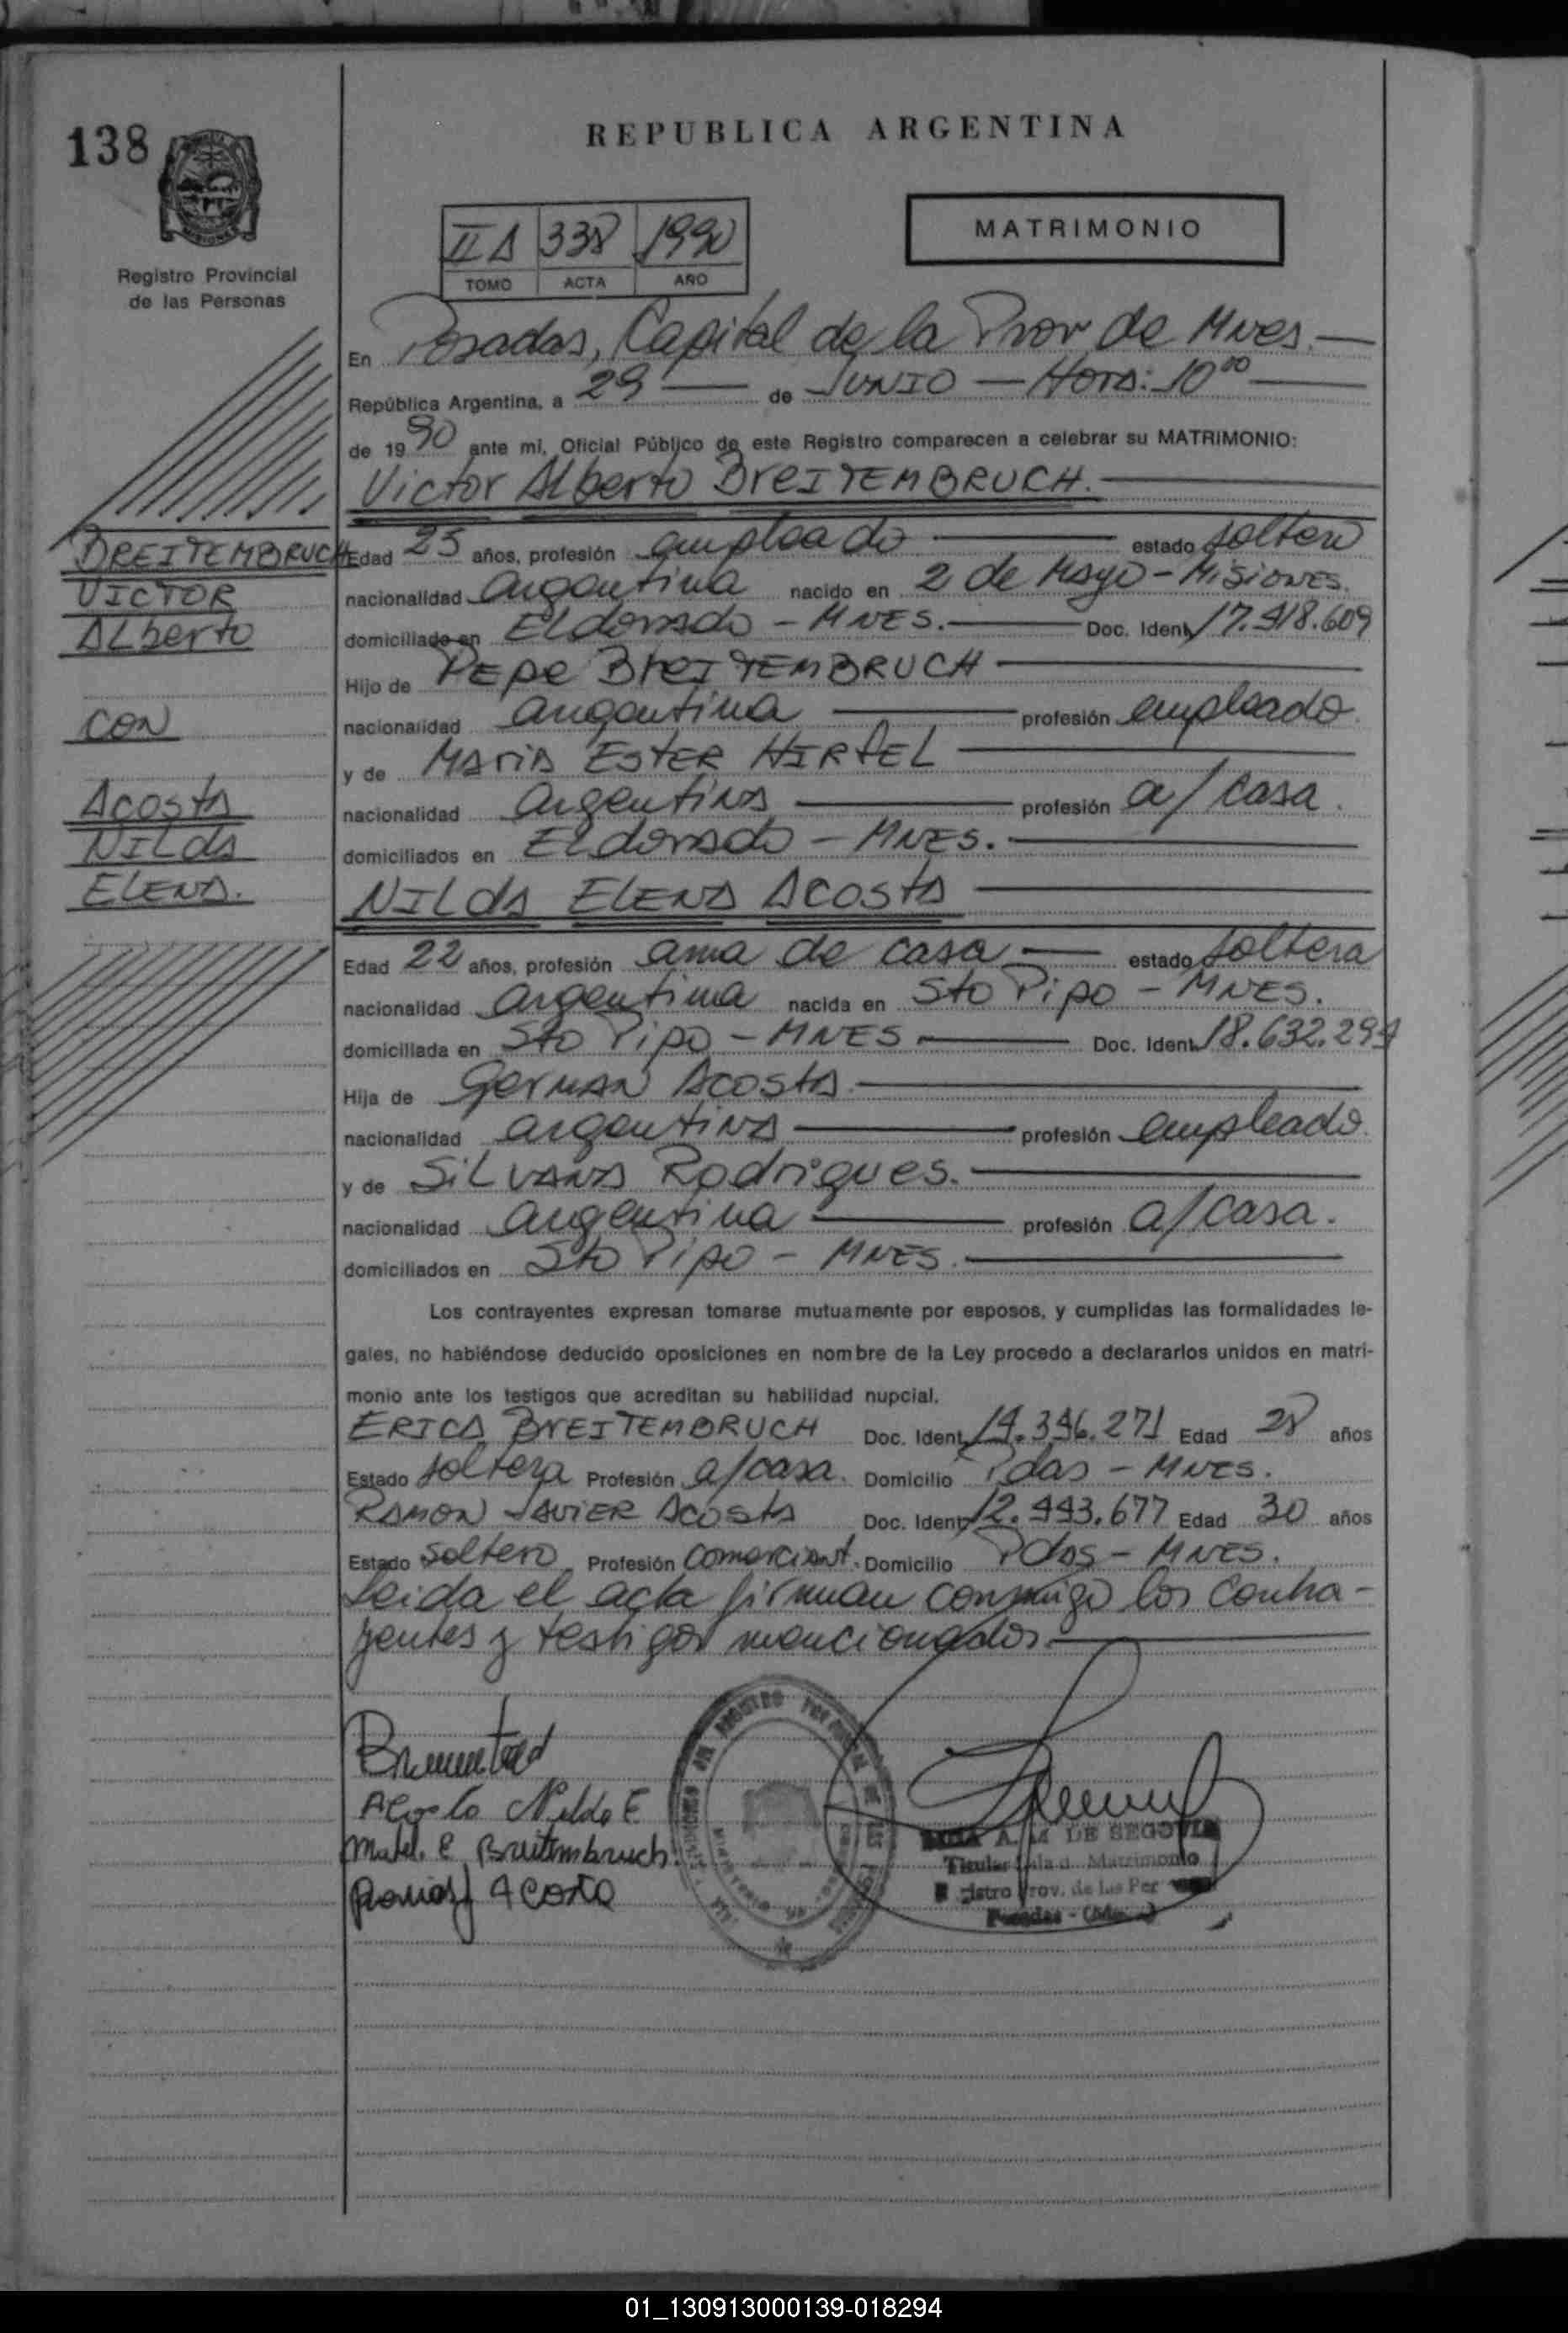 138
REPUBLICA ARGENTINA
MATRIMONIO
II A 338 1990
TOMO ACTA AÑO
Registro Provincial
de las Personas
En Posadas, Capital de la Prov de Mnes.
República Argentina, a 29 de JUNIO - Hora: 10 00
de 1990 ante mi, Oficial Público de este Registro comparecen a celebrar su MATRIMONIO:
Victor Alberto BreITEMBRUCH.
BREITEMBRUCH
VICTOR
ALberto
CON
Acosta
NILda
ELENA.
Edad 25 años, profesión empleado estado soltero
nacionalidad argentina nacido en 2 de Mayo - Misiones.
domiciliado en Eldorado - MNES. Doc. Ident. 17.418.609
Hijo de PEpe BreITEMBRUCH
nacionalidad argentina profesión empleado
y de Maria Ester
nacionalidad argentina profesión a/casa.
domiciliados en Eldorado - MNES.
NILda ELENA Acosta
Edad 22 años, profesión ama de casa estado soltera
nacionalidad argentina nacida en Sto Pipo - MNES.
domiciliada en Sto Pipo - MNES Doc. Ident. 18.632.294
Hija de German Acosta
nacionalidad argentina profesión empleado.
y de SiLvana Rodrigues.
nacionalidad argentina profesión a/casa.
domiciliados en Sto Pipo - MNES.
Los contrayentes expresan tomarse mutuamente por esposos, y cumplidas las formalidades le-
gales, no habiéndose deducido oposiciones en nombre de la Ley procedo a declararlos unidos en matri-
monio ante los testigos que acreditan su habilidad nupcial.
ERICA BREITEMBRUCH Doc. Ident. 14.346.271 Edad 28 años
Estado soltera Profesión a/casa. Domicilio Pdas - MNES.
RAMON JAVIER Acosta Doc. Ident. 12.443.677 Edad 30 años
Estado Soltero Profesión Comerciant. Domicilio Pdas - MNES.
Leida el acta firman conmigo los contra-
yentes y testigos mencionados.
Acosta Nilda E
Breitembruch
Acosta
A. M DE SEGOVIA
Titular Sala d. Matrimonio
Prov. de las Per
Posadas
01_130913000139-018294